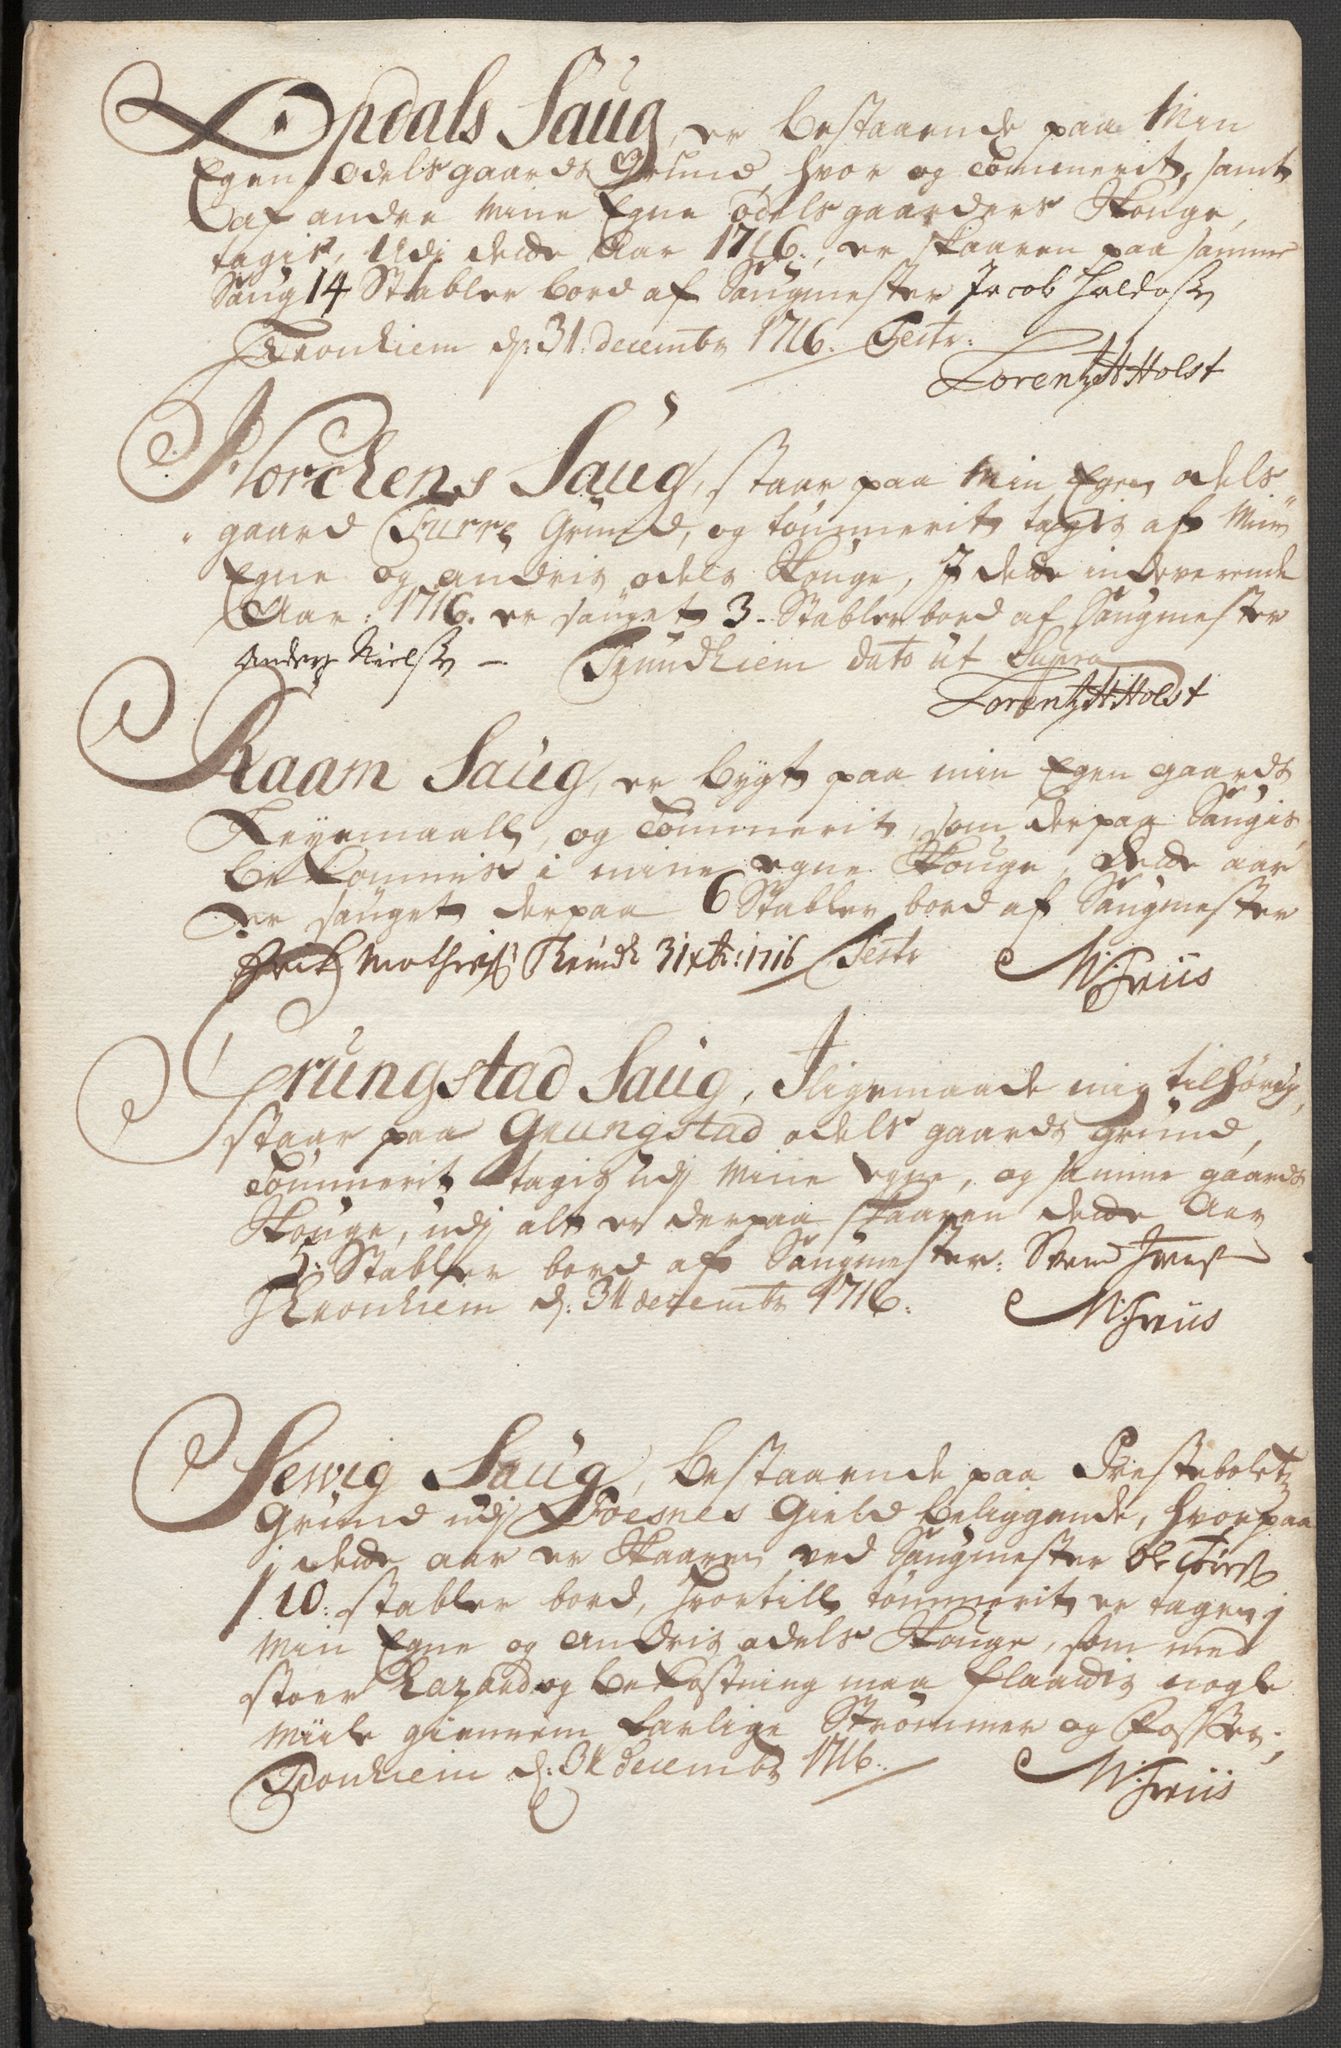 Opdals Saug, er bestaaende paa Min
Egen odels gaards Grund, hvor og Tømmerit, samt
af andre mine Egne odels gaarders Skouge,
tagis, Udj dette Aar 1716, er skaaren paa samme
Saug 14 Stabler bord af Saugmester Jacob
Tronhiem d: 31 decembr 1716. Testr.
Lorentz H Holst
Norchens Saug, staar paa Min Egen odels
gaard Furre Grund, og tømmerit tagis af Min
Egne og andris odels Skouge, J dette indeverende
Aar: 1716. er sauget 3- Stabler bord af Saugmester
Anders Nielss: – Trundhiem dato ut Supra
Lorentz H Holst
Raam Saug, er bygt paa min Egen gaards
Leyemaall, og Tømmerit, som derpaa Saugis,
bekommis i mine egne Skouge, dette aar
er sauget derpaa 6 Stabler bord af Saugmester
Erich Mothiess Thrundh 31 xbr: 1716 Testr
M: Friis
Grungstad Saug, Jligemaade mig tilhørig,
staar paa Grungstad odels gaards grund,
Tømmerit tagis udj Mine egne, og samme gaards
Skouge, udj alt er derpaa skaaren dette Aar
5: Stabler bord af Saugmester: Svend Iverss
Thronhiem d: 31 decembr 1716.
M: Friis
Sewig Saug, bestaaende paa Prestebolets
Grund udj Foesnes Gield beliggende, hvorpaa
j dette aar er Skaaren ved Saugmester Ole
10: stabler bord, hvortill tømmerit er tagen j
Min Egne og andris odels Skouge, som med
stoer Hazard og bekostning maa flaadis nogle
Miile giennem farlige Strømmer og Fosser.,
Tronhiem d: 31 decembr 1716.
M: Friis